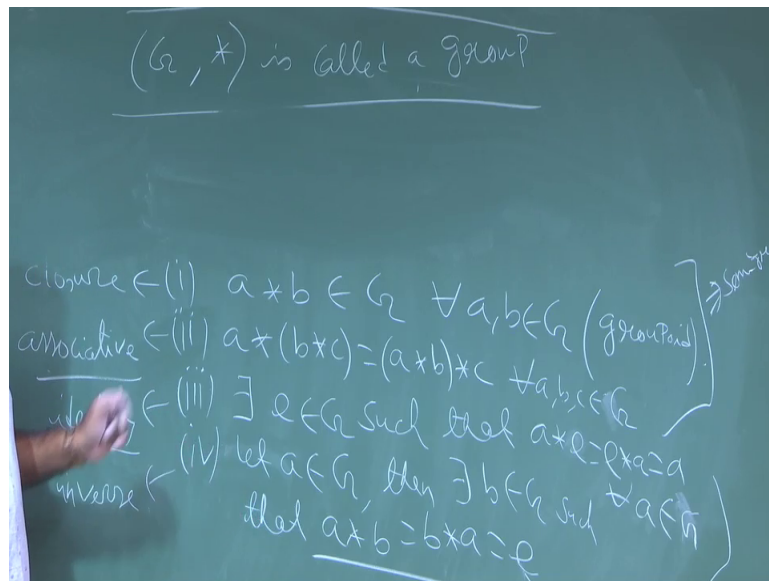 (G, *) is called a group
closure ← (i) a * b ∈ G ∀ a, b ∈ G (groupoid)
associative ← (ii) a * (b * c) = (a * b) * c ∀ a, b, c ∈ G
← (iii) ∃ e ∈ G such that a * e = e * a = a
∀ a ∈ G
inverse ← (iv) let a ∈ G, then ∃ b ∈ G such
that a * b = b * a = e